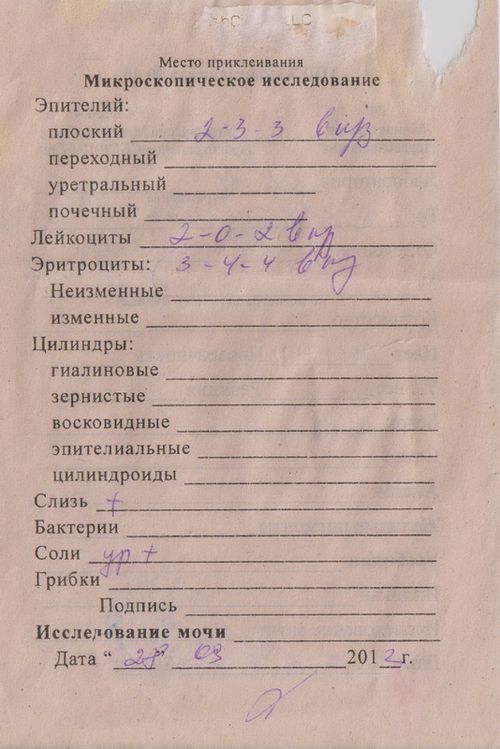 Место приклеивания
Микроскопическое исследование
Эпителий:
плоский 2-3-3 в п/з
переходный
уретральный
почечный
Лейкоциты 2-0-2 в п/з
Эритроциты: 3-4-4 в п/з
Неизменные
изменные
Цилиндры:
гиалиновые
зернистые
восковидные
эпителиальные
цилиндроиды
Слизь +
Бактерии
Соли ур +
Грибки
Подпись
Исследование мочи
Дата “ 28 ” 03 2012 г.